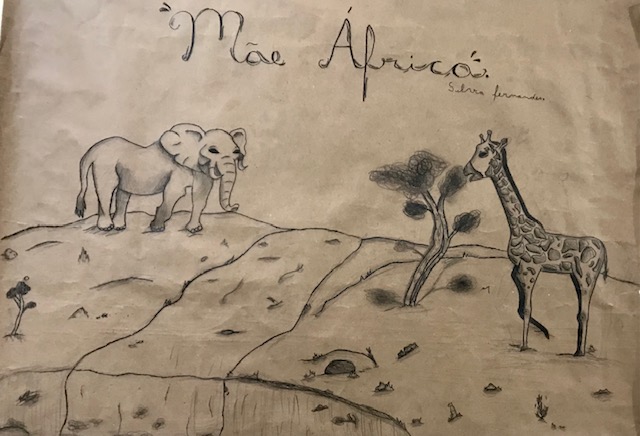 "Mãe África".
Silvva fernandes.